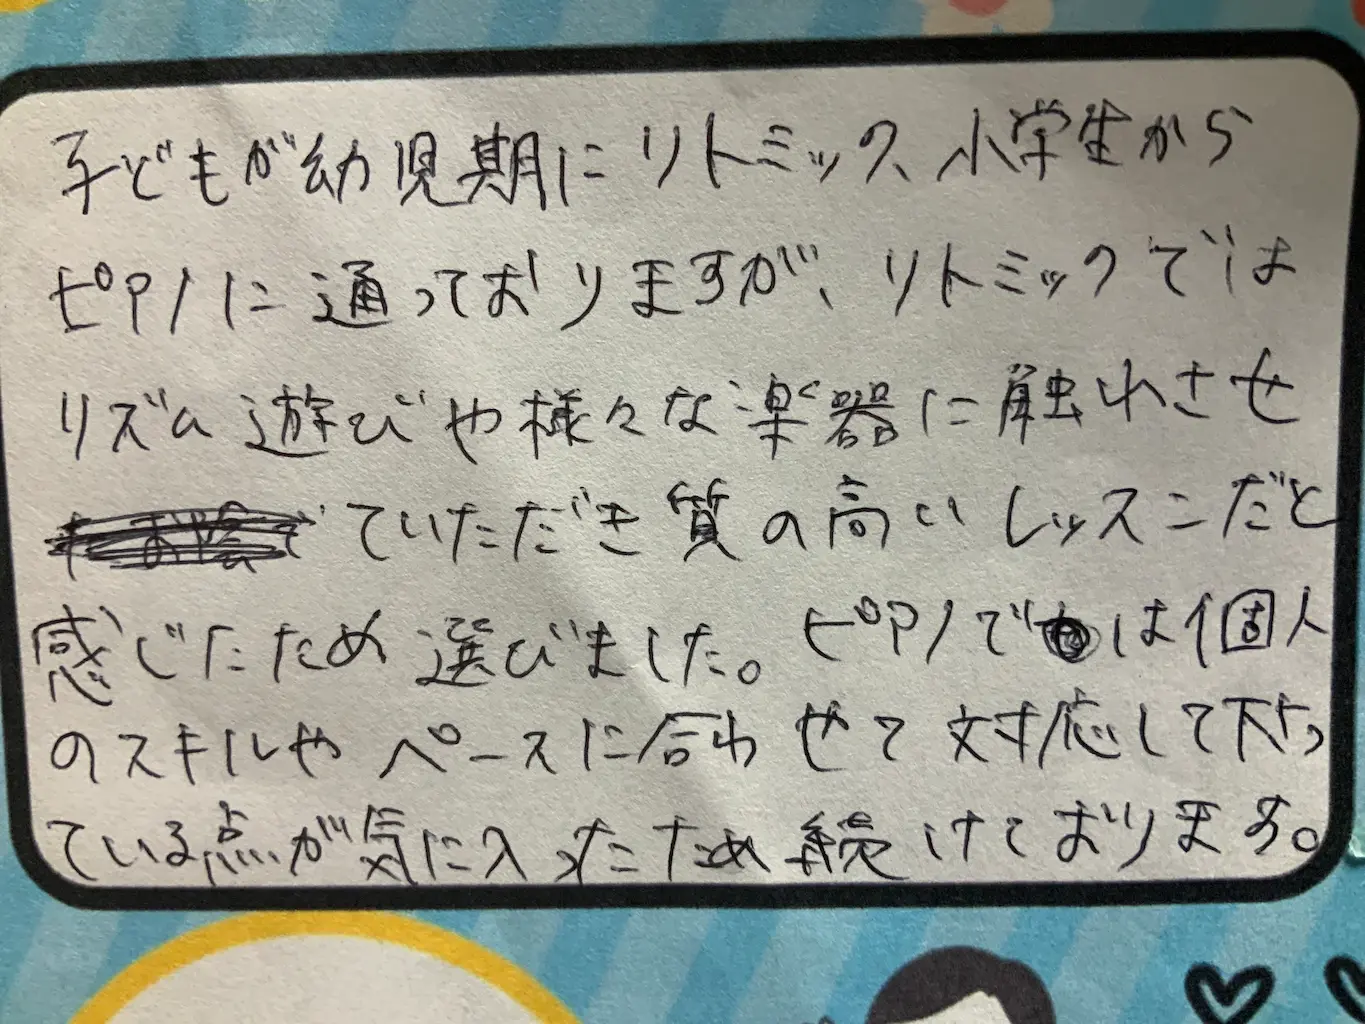 子どもが幼児期にリトミック、小学生から
ピアノに通っておりますが、リトミックでは
リズム遊びや様々な楽器に触れさせ
ていただき質の高いレッスンだと
感じたため選びました。ピアノでは個人
のスキルやペースに合わせて対応して下さっ
ている点が気に入ったため続けております。